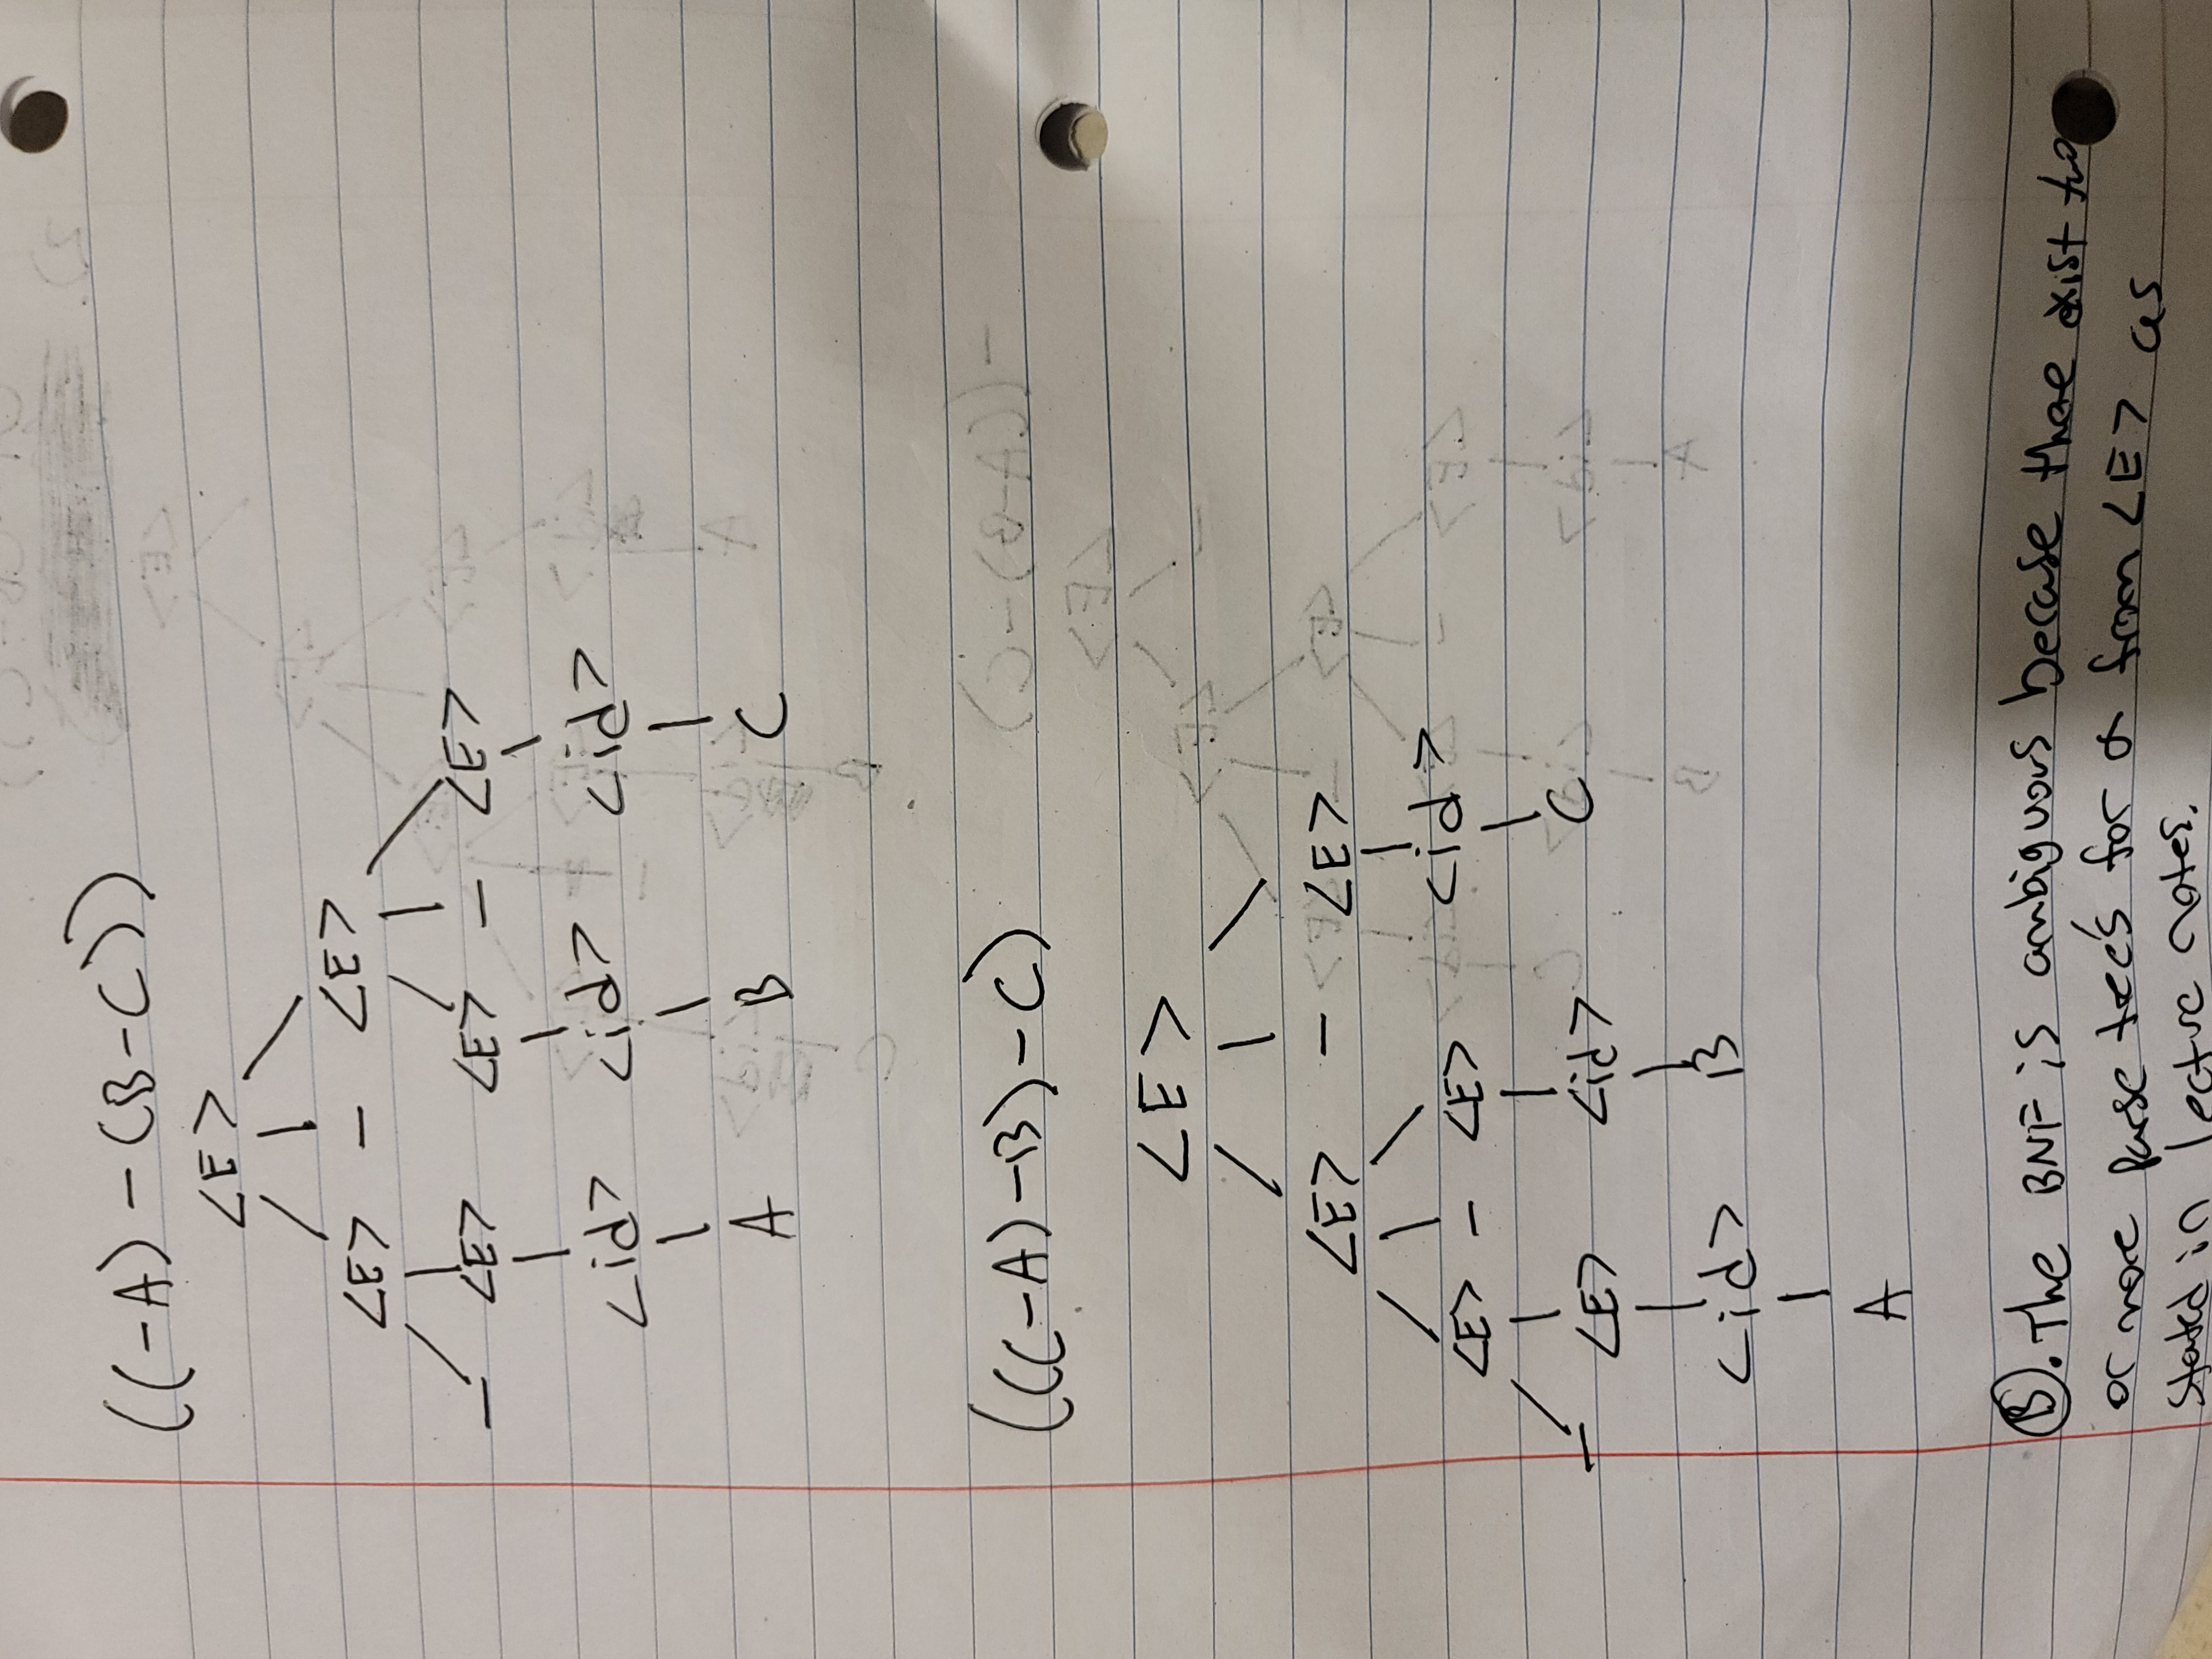 ((-A) - (B-C))
<E>
<E> - <E>
- <E> <E> - <E>
<id> <id> <id>
A B C
(((-A)-B)-C)
<E>
<E> - <E>
<E> - <E> <id>
- <E> <id> C
<id> B
A
B. The BNF is ambiguous becase there exist two
or more parse tree's for α from <E> as
stated in lecture notes.